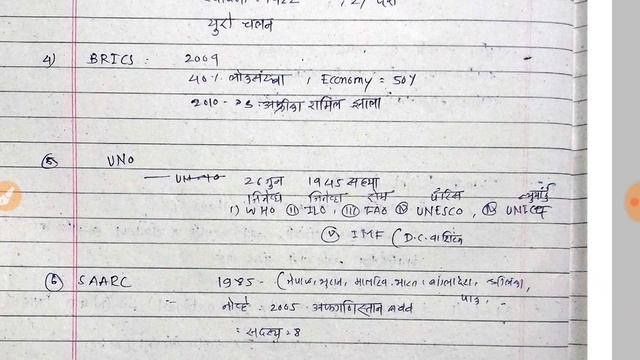 युरो चलन
4) BRICS : 2009
40% लोकसंख्या , Economy = 50%
2010 - द. अफ्रीका शामिल झाला
⑤ UNO
26 जुन 1945 सह्या
जिनेव्हा जिनेव्हा रोम पॅरिस
i) WHO ii) ILO, iii) FAO iv) UNESCO,
v) IMF (D.C.
⑥ SAARC 1985 - (नेपाळ, भूतान, मालदिव, भारत, बांगलादेश, श्रीलंका,
पाक,
2005 - अफगाणिस्तान
: सदस्य = 8